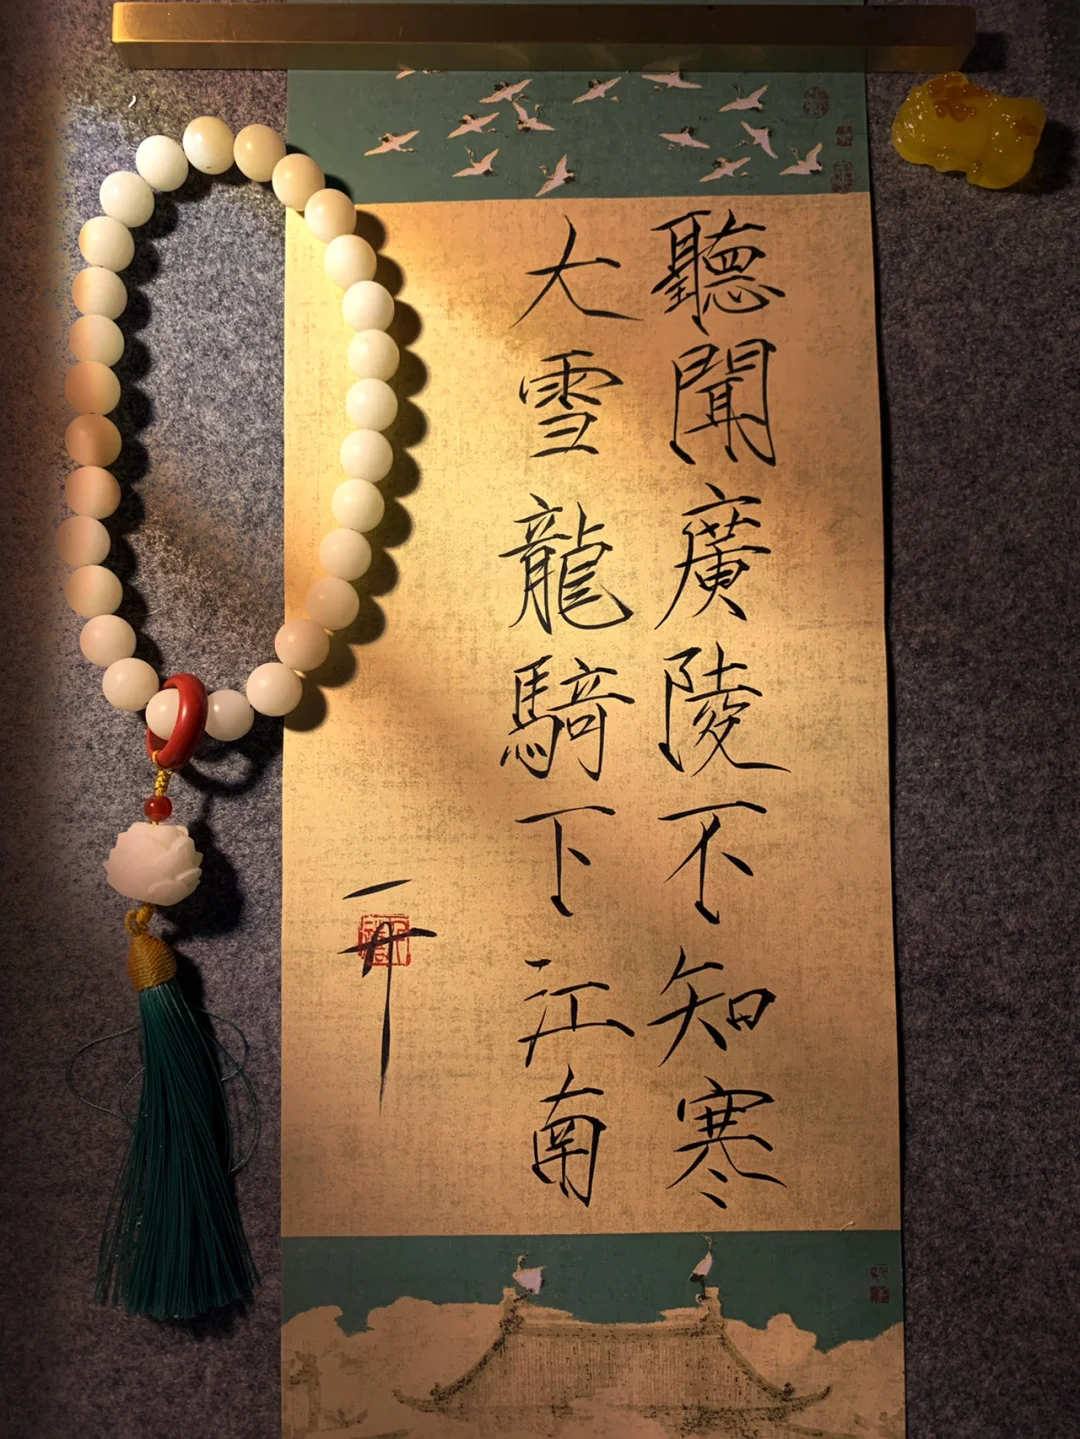 聽聞廣陵不知寒
大雪龍騎下江南